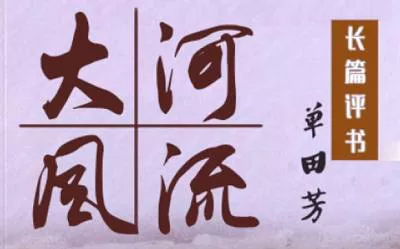 大河
风流
长篇评书
单田芳